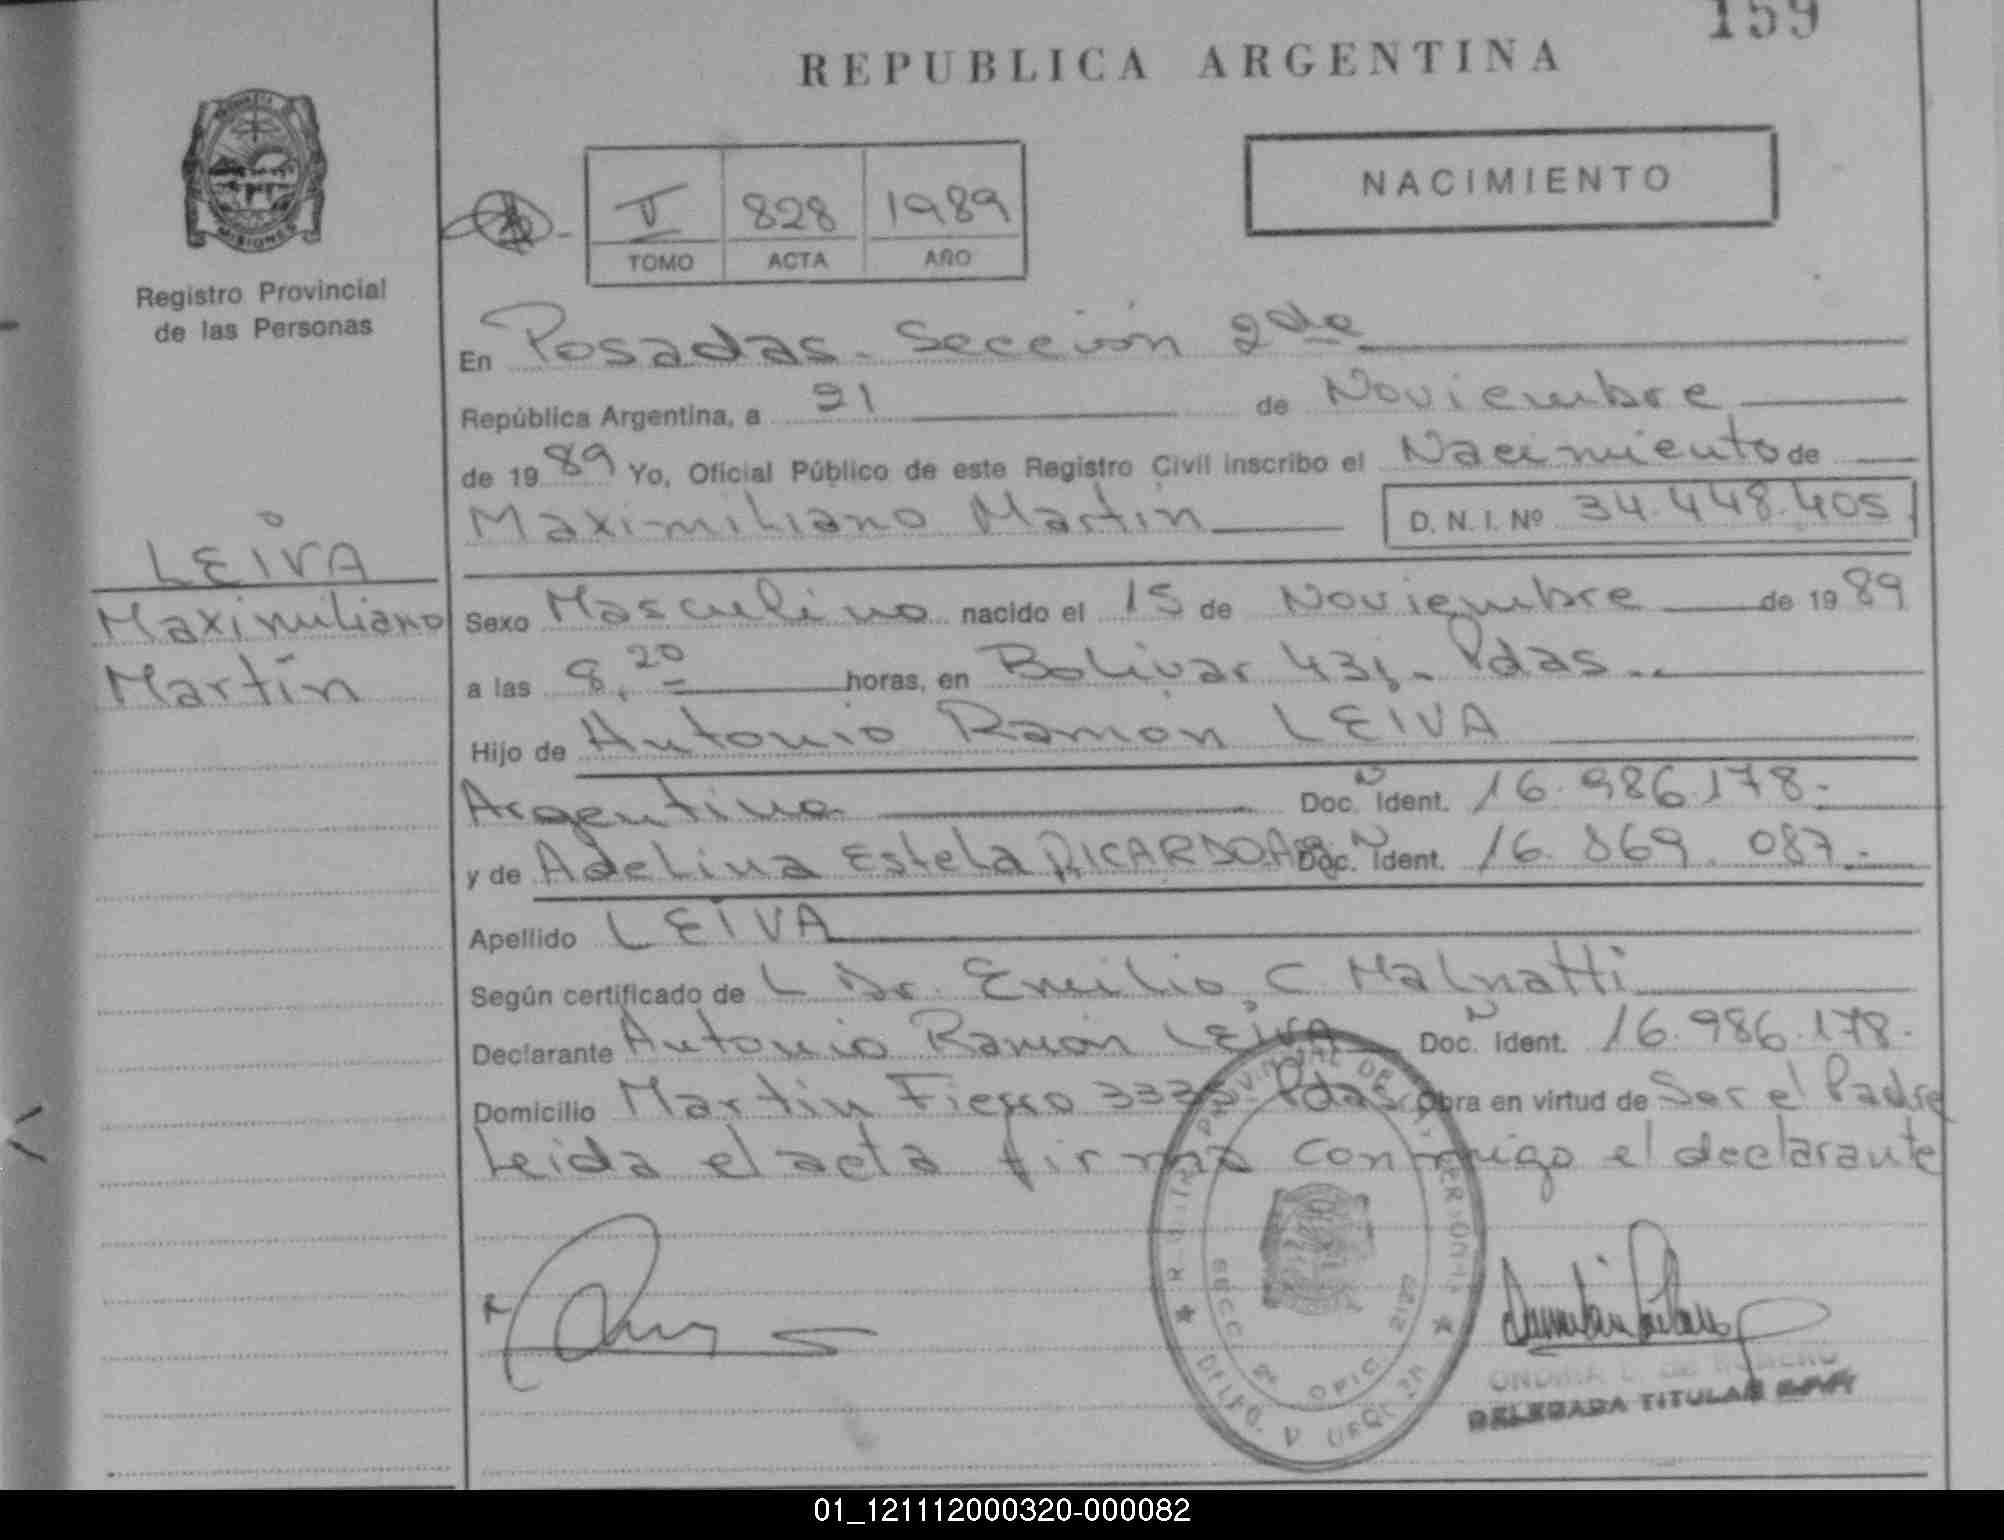 159
REPUBLICA ARGENTINA
MISIONES
Registro Provincial
de las Personas
NACIMIENTO
V 828 1989
TOMO ACTA AÑO
En Posadas - Sección 2da
República Argentina, a 21 de Noviembre
de 19 89 Yo, Oficial Público de este Registro Civil inscribo el Nacimiento de
Maximiliano Martín D. N. I. Nº 34.448.405
LEIVA
Maximiliano
Martín
Sexo Masculino nacido el 15 de Noviembre de 19 89
a las 8,20 horas, en Bolivar - Pdas.
Hijo de Antonio Ramón LEIVA
Argentino Doc. Ident. 16.986.178.-
y de Adelina Estela RICARDO Arg. Doc. Ident. 16.869.087.-
Apellido LEIVA
Según certificado de L Dr. Emilio C. Malnatti
Declarante Antonio Ramón LEIVA Doc. Ident. 16.986.178.
Domicilio Martín Fierro Pdas Obra en virtud de Ser el Padre
Leida el acta firma conmigo el declarante
SECC. 2ª OFIC.
DELEGADA TITULAR
01_121112000320-000082